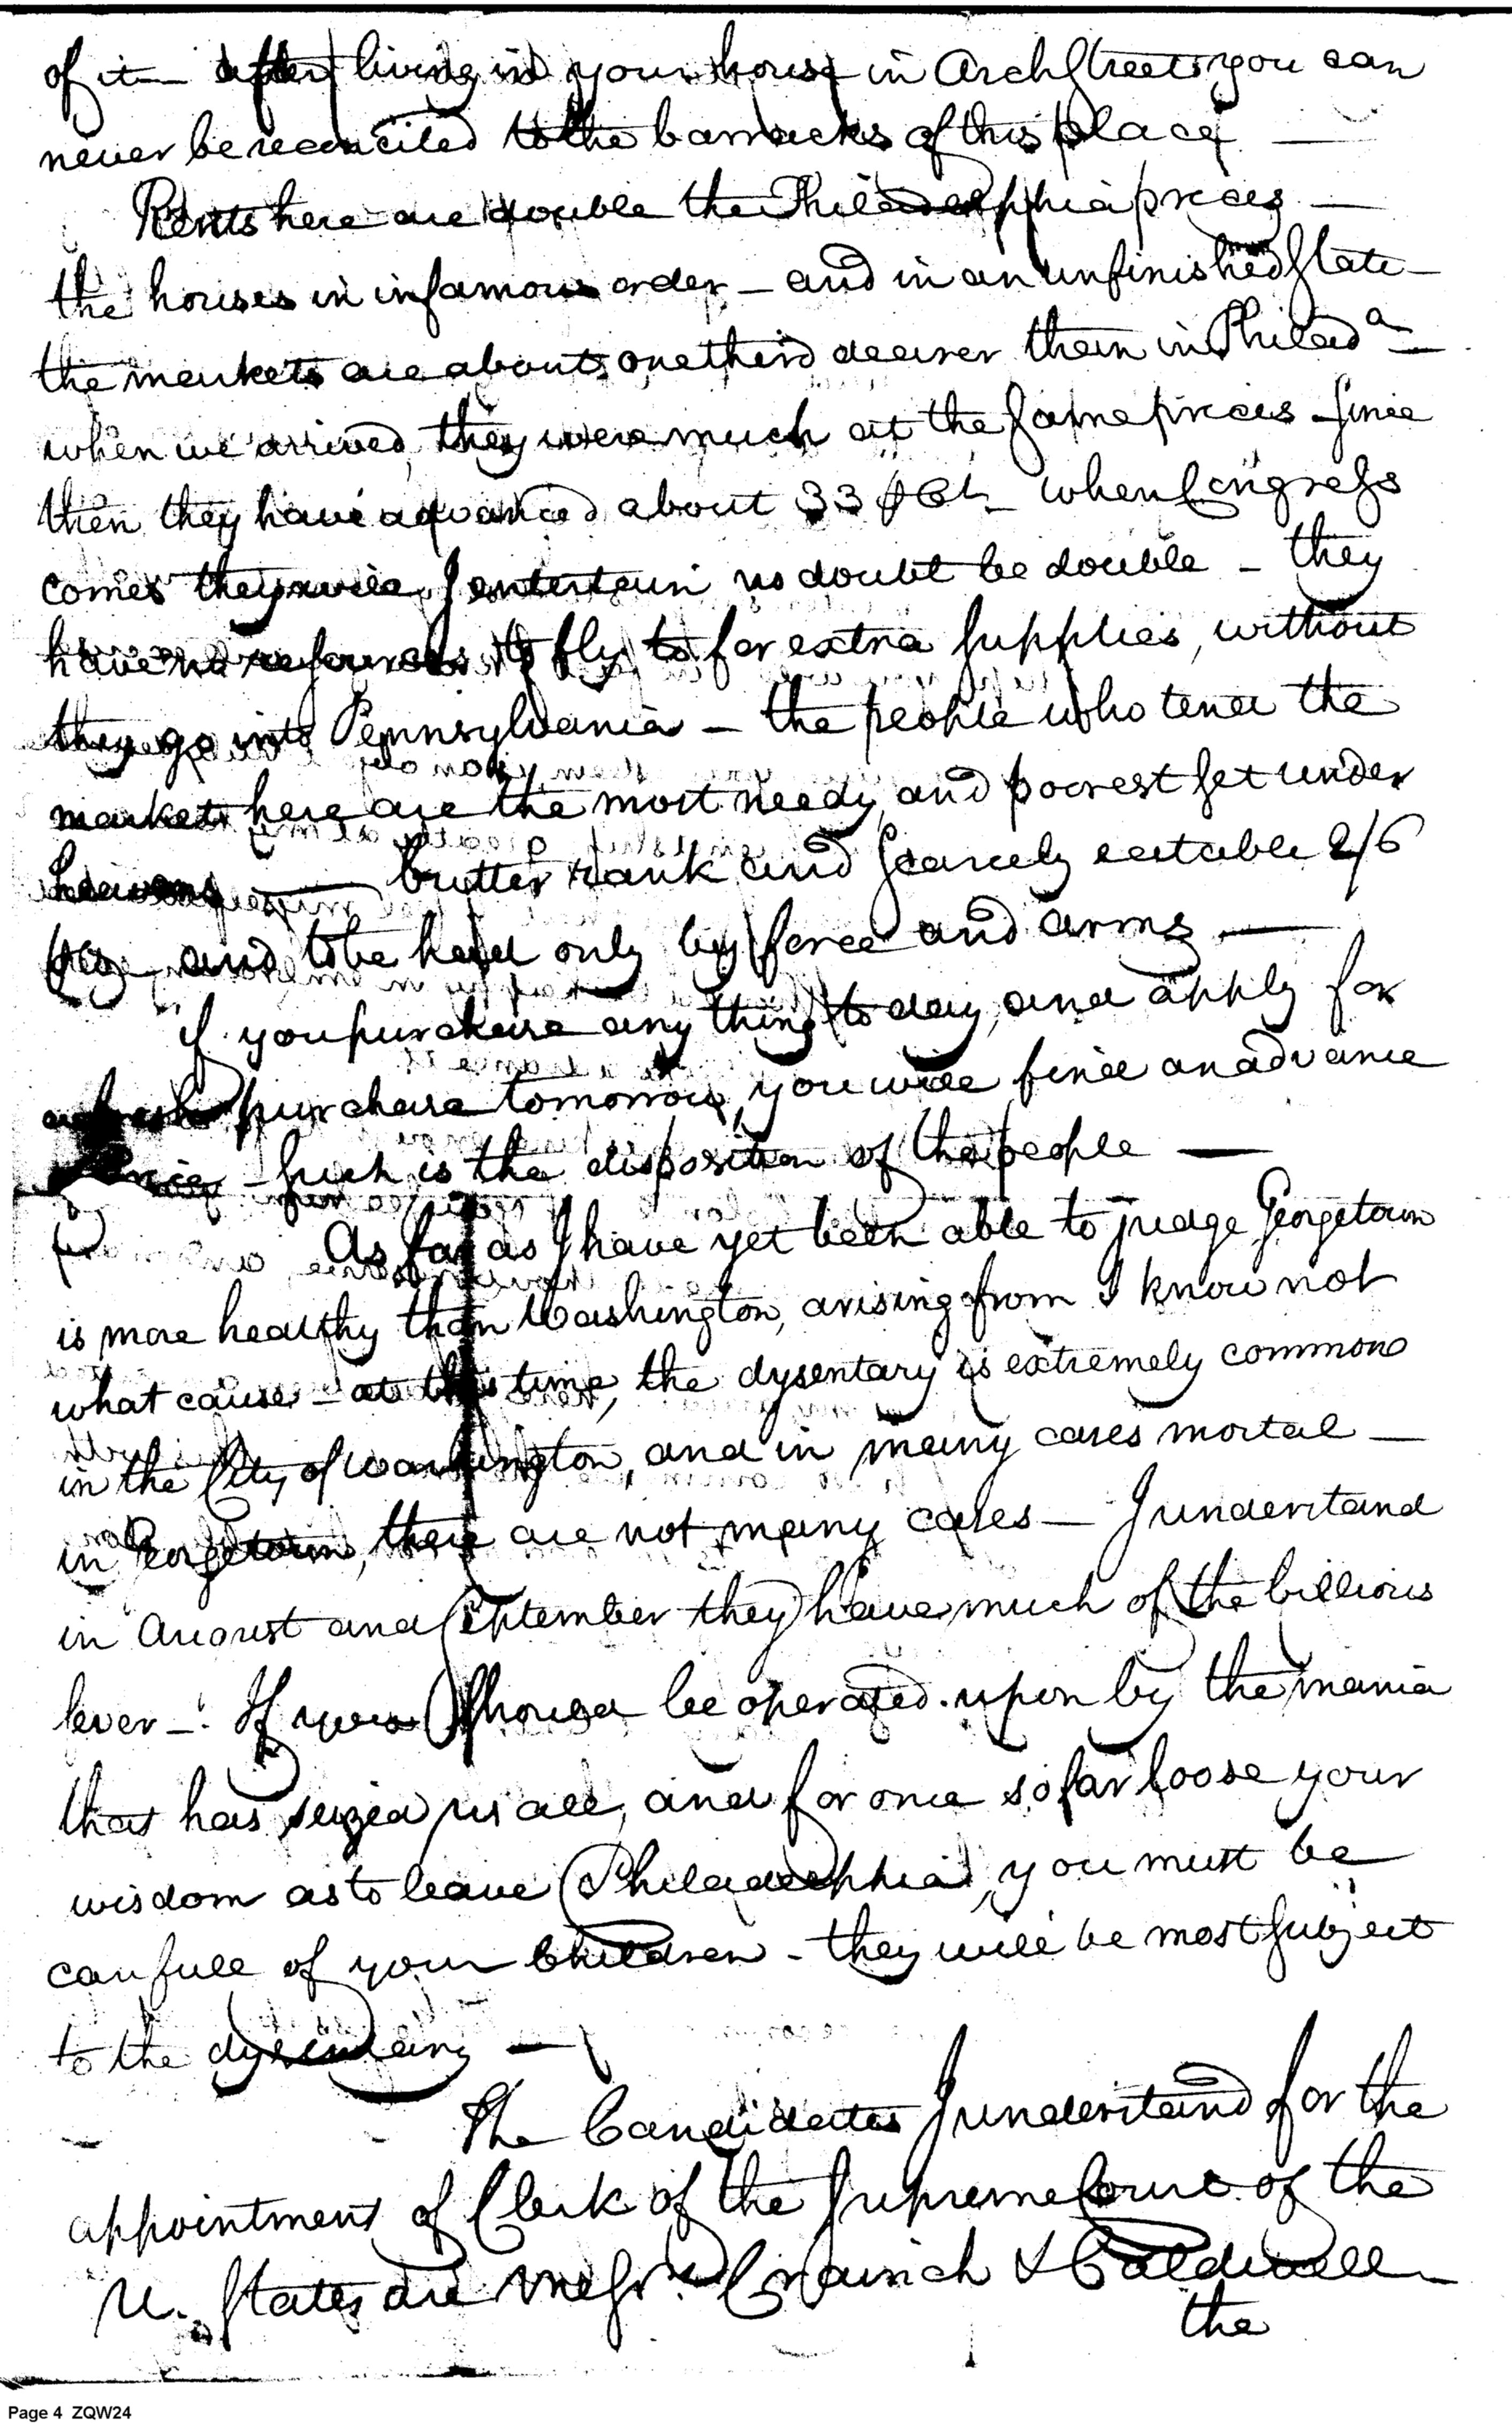 of it - after living in your house in Arch Street you can
never be reconciled to the barracks of this place —
Rents here are double the Philadelphia prices —
the houses in infamous order - and in an unfinished state -
the markets are about one third dearer than in Philada -
when we arrived, they were much at the same prices - since
then they have advanced about 33 when Congress
comes they will, I entertain no doubt be double - they
have no resources to fly to for extra supplies, without
they go into Pennsylvania - the people who tend the
markets here are the most needy, and poorest set under
heavens — butter rank and scarcely eatable 2/6
and to be had only by force and arms —
if you purchase any thing to day, and apply for
a fresh purchase tomorrow, you will find an advance
price - such is the disposition of the people —
As far as I have yet been able to judge Georgetown
is more healthy than Washington, arising from I know not
what cause - at this time, the dysentary is extremely common
in the City of Washington, and in many cases mortal —
in Georgetown, there are not many cases — I understand
in August and September they have much of the billious
fever -. If you should be operated upon by the mania
that has seized us all, and for once so far loose your
wisdom as to leave Philadelphia, you must be
carefull of your Children - they will be most subject
to the dysentary —
The Candidates I understand for the
appointment of Clerk of the Supreme Court of the
U. States are Messrs Craunch & Caldwell -
the
Page 4 ZQW24